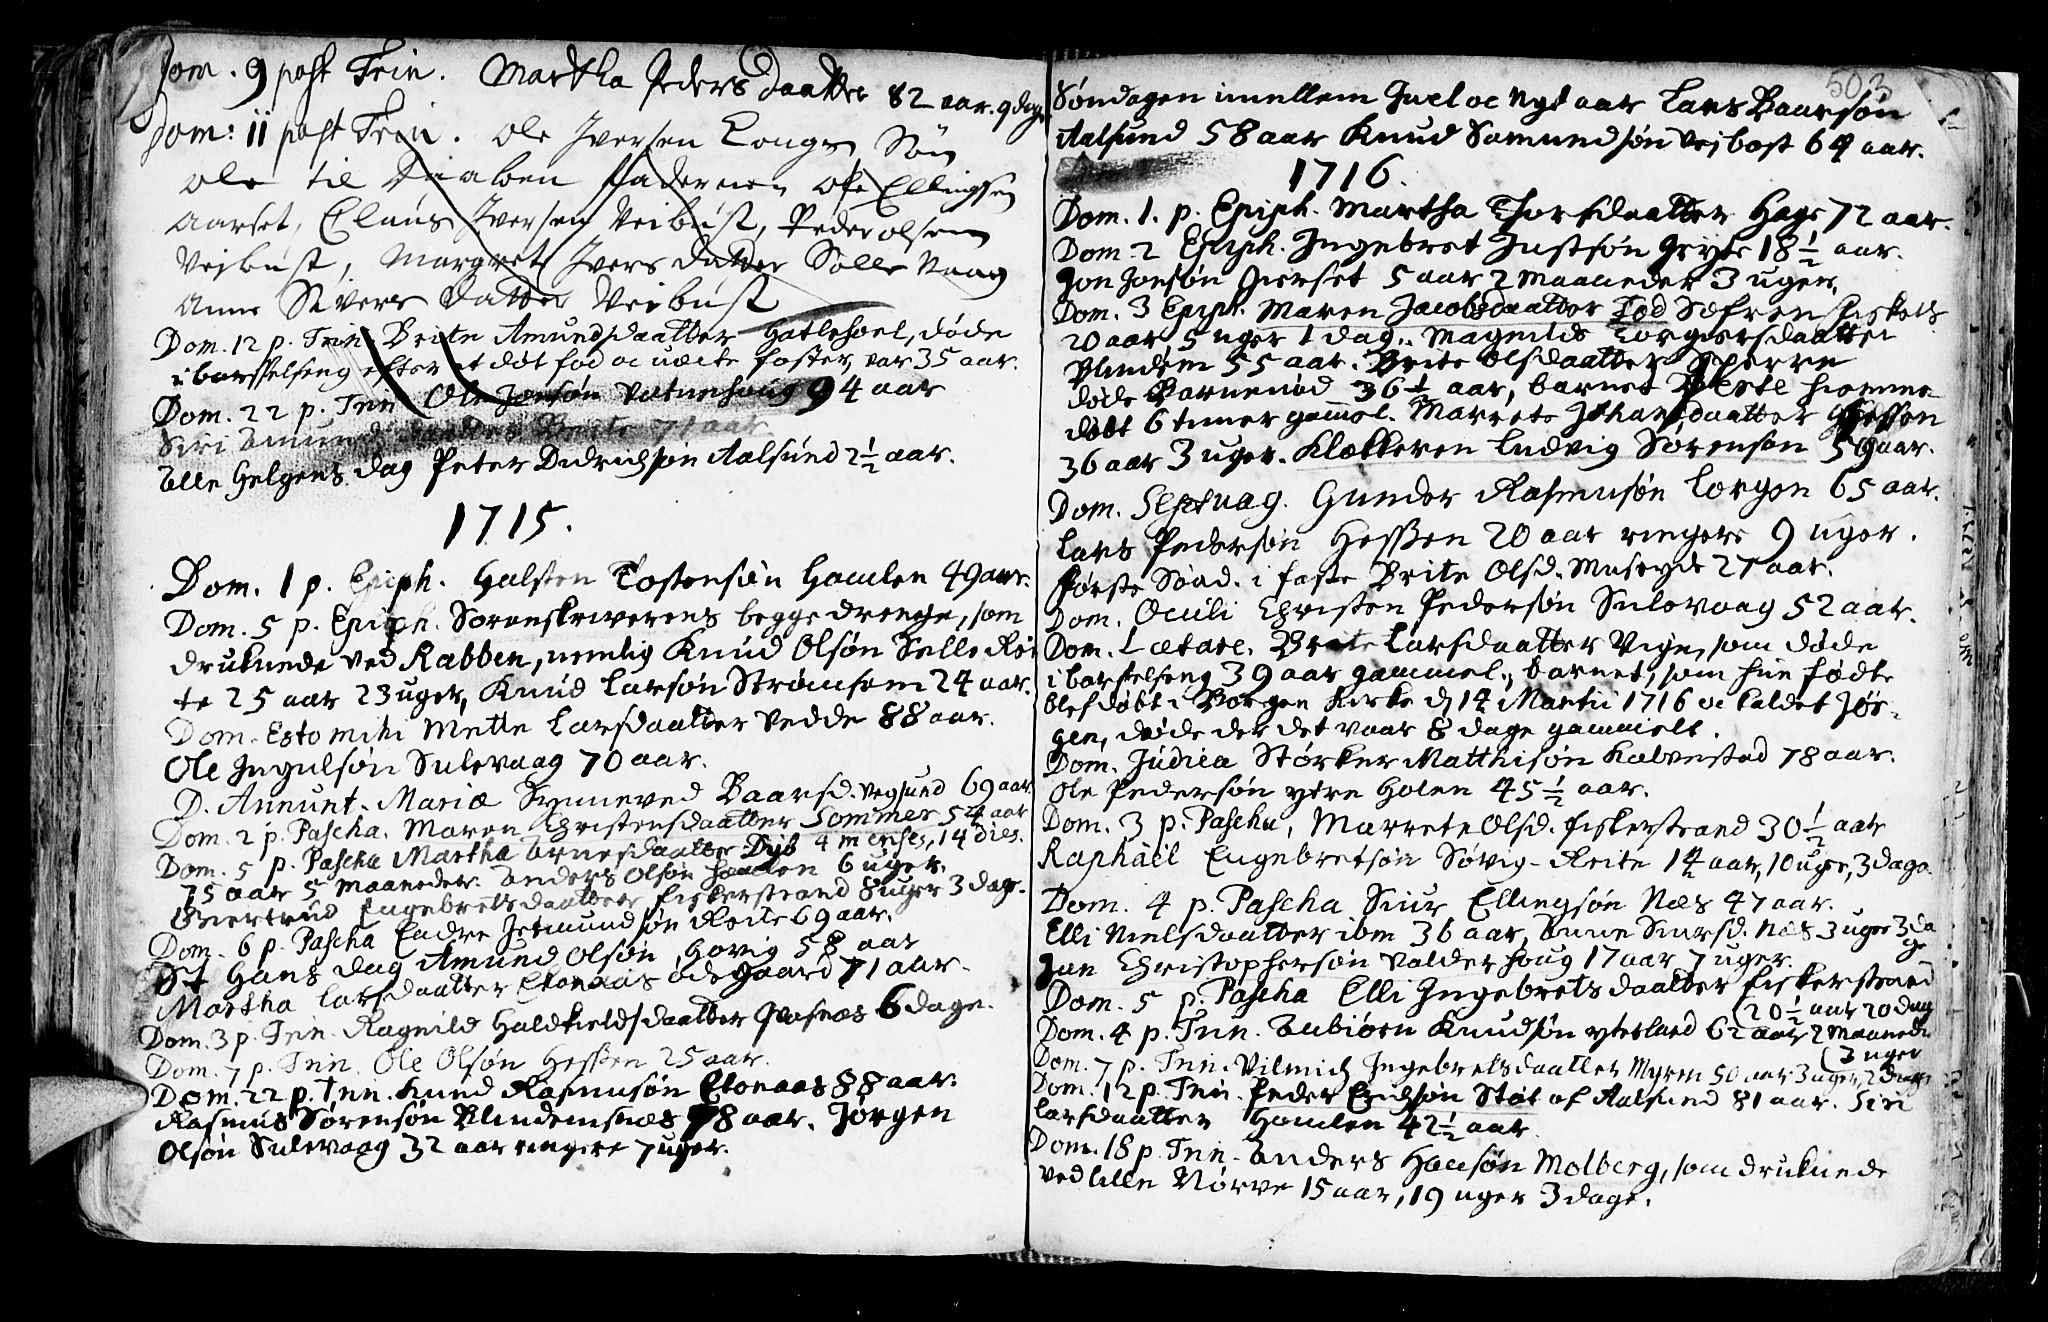 Dom. 9 post Trin. Martha Peders Daatter 82 aar. 9 dage
Dom: 11 post Trin. Ole Iversen Longs Søn
Ole til Daaben Fadderne Ole Ellingsen
Aarset, Claus Iversen Veibust, Peder olsen
Veibust, Margrete Ivers datter Solle Vaag
Anne Sivers datter Veibust
Dom. 12 p. Trin. Brite Amundsdaatter Hatlehoel, døde
i barselseng efter et døt fød oc uæcte foster, var 35 aar.
Dom. 22 p. Trin Ole Jonsøn Vatnehoug 94 aar
Siri Amunds daatter Reite 71 aar.
Alle Helgens dag Peter Didrichsøn Aalsund 2½ aar.
1715.
Dom. 1 p. Epiph. Halsten Tostensøn Hamlen 49 aar.
Dom. 5 p. Epiph. Sorenskriverens begge drenge, som
druknede ved Rabben, nemlig Knud Olsøn Sulle Rei
te 25 aar 23 uger, Knud Larsøn Strømsem 24 aar.
Dom. Estomihi Mette Larsdaatter Vedde 88 aar.
Ole Ingulsøn Sulevaag 70 aar.
D. Annunt. Mariæ Synneved Baarsd. Vegsund 69 aar.
Dom. 2 p. Pascha. Maren Christensdaatter Sommer 54 aar
4 menses, 14 dies.
Dom. 5 p. Pascha Martha Arnesdaatter Dyb
75 aar 5 maaneder. Anders Olsøn Hamlen 6 uger.
Giertrud Ingebretsdaatter Fiskerstrand 8 uger 3 dage.
Dom. 6 p. Pascha Endre Jetmundsøn Reite 69 aar.
St Hans dag Amund Olsøn Govig 58 aar
Martha Larsdaatter Etonaas ødegaard 71 aar.
Dom. 3 p. Trin. Ragnild Haldkieldsdaatter Aasnæs 6 dage.
Dom. 7 p. Trin. Ole Olsøn Hessen 25 aar.
Dom. 22 p. Trin. Knud Rasmusøn Etonaas 88 aar.
Rasmus Sørensøn Blindemsnæs 78 aar. Jørgen
Olsøn Sulevaag 32 aar ringere 7 uger.
503
Søndagen imellem Juel oc Nyt aar Lars Baarsøn
Aalsund 58 aar Knud Samundsøn Vejbost 64 aar.
1716.
Dom. 1. p. Epiph. Martha Thorsdaatter Hage 72 aar.
Dom. 2 Epiph. Ingebret Justsøn Gryte 18½ aar.
Jon Jonsøn Gierset 5 aar 2 Maaneder 3 uger.
Dom. 3 Epiph. Maren Jacobsdaatter Tød Søfren Fiskers
20 aar 5 uger 1 dag. Magnild Torgiersdaatter
Blindem 55 aar. Brite Olsdaatter Sperre
døde Barnenød 36½ aar, barnet Peste hiemme-
døbt 6 timer gammel. Marrete Johansdaatter Hessen
36 aar 3 uger. Klockeren Ludvig Sørensøn 59 aar.
Dom. Septuag. Gunder Rasmusøn Lorgen 65 aar.
Lars Pedersøn Hessen 20 aar ringere 9 uger.
Første Sønd. i faste Brite Olsd. Museyde 27 aar.
Dom. Oculi Christen Pedersøn Sulevaag 52 aar.
Dom. Lætare. Brite Larsdaatter Vige, som døde
i barselseng 39 aar gammel, barnet, som hun fødte
blef døbt i Borgen Kirke d 14 Martii 1716 oc kaldet Jør-
gen, døde der det vaar 8 dage gammelt.
Dom. Judica Størker Matthisøn Kalvestad 78 aar.
Ole Pedersøn ytre Holen 45½ aar.
Dom. 3 p. Pascha, Marrete Olsd. Fiskerstrand 30½ aar
Raphael Engebretsøn Søvig-Reite 14 aar, 10 uge, 3 dage.
Dom. 4 p. Pascha Siur Ellingsøn Næs 47 aar.
Elli Nielsdaatter ibm 36 aar, Anne Siursd. Næs 3 uger 3 da
ge
Jan Christophersøn Valderhoug 17 aar 7 uger.
Dom. 5 p. Pascha Elli Ingebretsdaatter Fiskerstrand
(20½ aar 20 dag
Dom. 4 p. Trin. Aubiørn Knudsøn Yterland 62 aar 2 maaned.
(3 uger
Dom. 7 p. Trin. Vilmich Ingebretsdaatter Myren 50 aar 3 uger, 2 dage
Dom. 12 p. Trin. Peder Erichsøn Støt af Aalsund 81 aar. Siri
Larsdaatter Hamlen 42½ aar.
Dom. 18 p. Trin. Anders Hansøn Molberg, som druknede
ved lille Nørve 15 aar, 19 uger 3 dage.